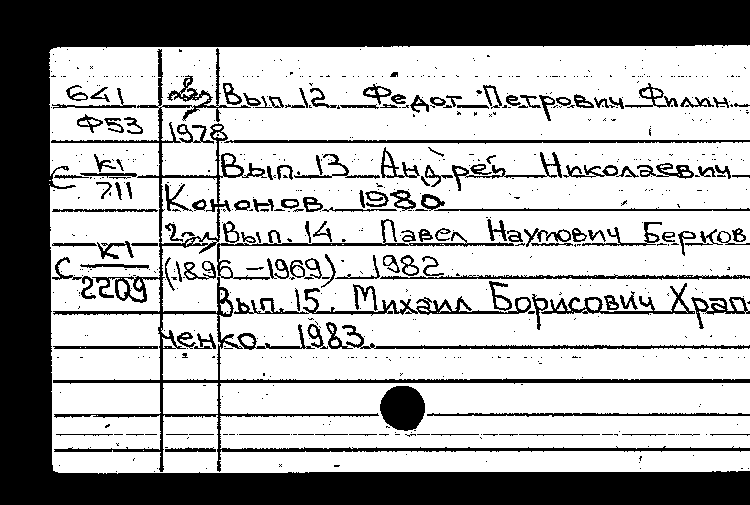 641 2эк Вып. 12 Федот Петрович Филин.
Ф53 1978
С К1/711 Вып. 13 Андрей Николаевич
Кононов. 1980.
2эк Вып. 14. Павел Наумович Берков
С К1/2209 (1896-1969). 1982.
Вып. 15. Михаил Борисович Храп-
ченко. 1983.